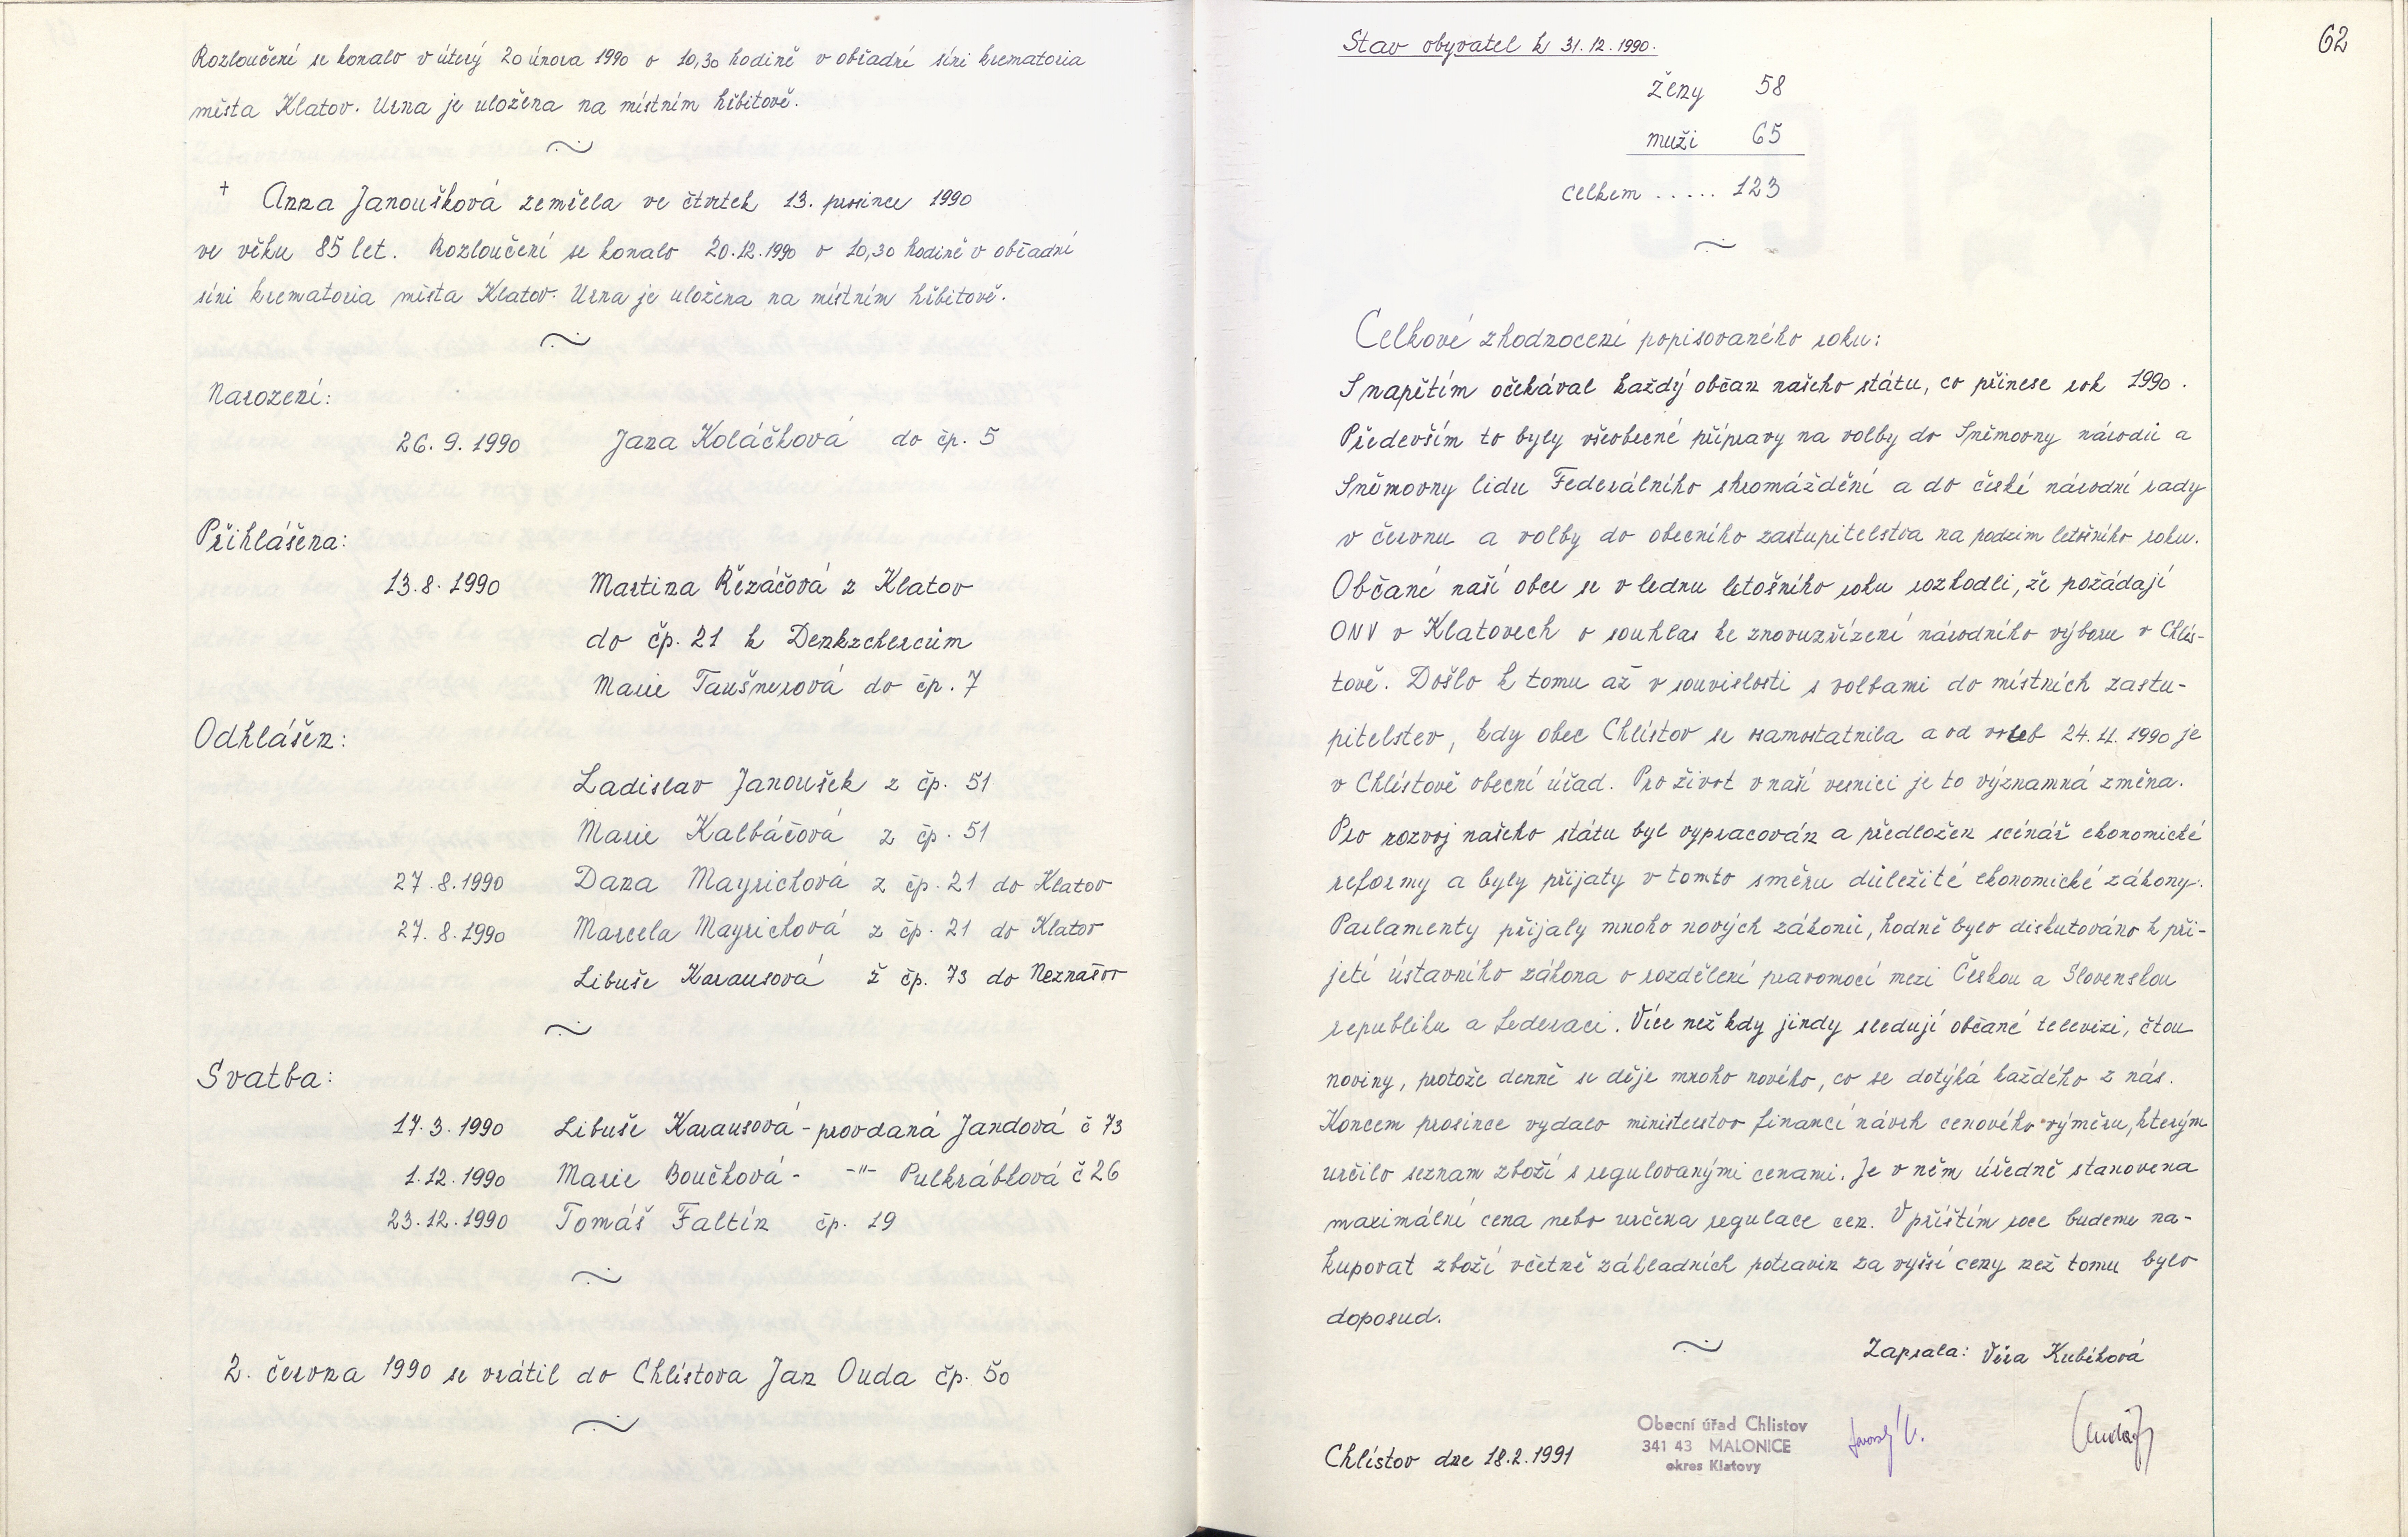 Rozloučení se konalo v úterý 20 února 1990 o 10,30 hodině v obřadní síni krematoria
města Klatov. Urna je uložena na místním hřbitově.
† Anna Janoušková zemřela ve čtvrtek 13. prosince 1990
ve věku 85 let. Rozloučení se konalo 20.12.1990 o 10,30 hodině v obřadní
síni krematoria města Klatov. Urna je uložena na místním hřbitově.
Narození:
26. 9. 1990 Jana Koláčková do čp. 5
Přihlášena:
13.8.1990 Martina Řezáčová z Klatov
do čp. 21 k Denkzchercům
Marie Taušnerová do čp. 7
Odhlášen:
Ladislav Janoušek z čp. 51
Marie Kalbáčová z čp. 51
27.8.1990 Dana Mayrichová z čp. 21 do Klatov
27.8.1990 Marcela Mayrichová z čp. 21 do Klatov
Libuše Karausová z čp. 73 do Neznašov
Svatba:
17.3.1990 Libuše Karausová - provdaná Jandová č 73
1.12.1990 Marie Boučková - -"- Pulkrábková č 26
23.12.1990 Tomáš Faltín čp. 19
2. června 1990 se vrátil do Chlístova Jan Ouda čp. 50
62
Stav obyvatel k 31.12.1990.
ženy 58
muži 65
celkem ..... 123
Celkové zhodnocení popisovaného roku:
S napětím očekával každý občan našeho státu, co přinese rok 1990.
Především to byly všeobecné přípravy na volby do Sněmovny národů a
Sněmovny lidu Federálního shromáždění a do české národní rady
v červnu a volby do obecního zastupitelstva na podzim letošního roku.
Občané naší obce se v lednu letošního roku rozhodli, že požádají
ONV v Klatovech o souhlas ke znovuzřízení národního výboru v Chlís-
tově. Došlo k tomu až v souvislosti s volbami do místních zastu-
pitelstev, kdy obec Chlístov se osamostatnila a od voleb 24.11.1990 je
v Chlístově obecní úřad. Pro život v naší vesnici je to významná změna.
Pro rozvoj našeho státu byl vypracován a předložen scénář ekonomické
reformy a byly přijaty v tomto směru důležité ekonomické zákony.
Parlamenty přijaly mnoho nových zákonů, hodně bylo diskutováno k při-
jetí ústavního zákona o rozdělení pravomocí mezi Českou a Slovenskou
republiku a federaci. Více než kdy jindy sledují občané televizi, čtou
noviny, protože denně se děje mnoho nového, co se dotýká každého z nás.
Koncem prosince vydalo ministerstvo financí návrh cenového výměru, kterým
určilo seznam zboží s regulovanými cenami. Je v něm úředně stanovena
maximální cena nebo určena regulace cen. V příštím roce budeme na-
kupovat zboží včetně základních potravin za vyšší ceny než tomu bylo
doposud.
Zapsala: Věra Kubíková
Obecní úřad Chlistov
341 43 MALONICE
okres Klatovy
Chlístov dne 18.2.1991